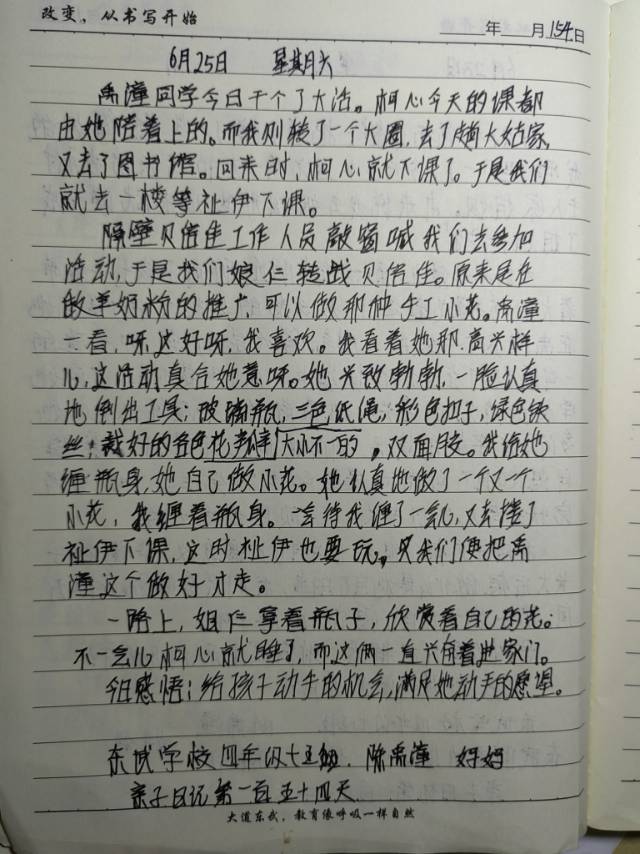 改变，从书写开始
年 月 154日
6月25日 星期六
禹潼同学今日干个了大活。柯心今天的课都
由她陪着上的。而我则绕了一个大圈，去了趟大姑家，
又去了图书馆。回来时，柯心就下课了。于是我们
就去一楼等祉伊下课。
隔壁贝倍佳工作人员敲窗喊我们去参加
活动，于是我们娘仨转战贝倍佳。原来是在
做羊奶粉的推广，可以做那种手工小花。禹潼
一看，呀这好呀，我喜欢。我看着她那高兴样
儿，这活动真合她意呀。她兴致勃勃，一脸认真
地倒出工具：玻璃瓶，三色纸绳，彩色扣子，绿色铁
丝，裁好的各色花瓣大小不一的，双面胶。我给她
缠瓶身，她自己做小花。她认真地做了一个又一个
小花，我缠着瓶身。等待我缠了一会儿，又去接了
祉伊下课，这时祉伊也要玩，我们便把禹
潼这个做好才走。
一路上，姐仨拿着瓶子，欣赏着自己的花。
不一会儿柯心就睡了，而这俩一直兴奋着进家门。
今日感悟：给孩子动手的机会，满足她动手的愿望。
东武学校四年级十五组 陈禹潼 妈妈
亲子日记第一百五十四天
大道东武，教育像呼吸一样自然